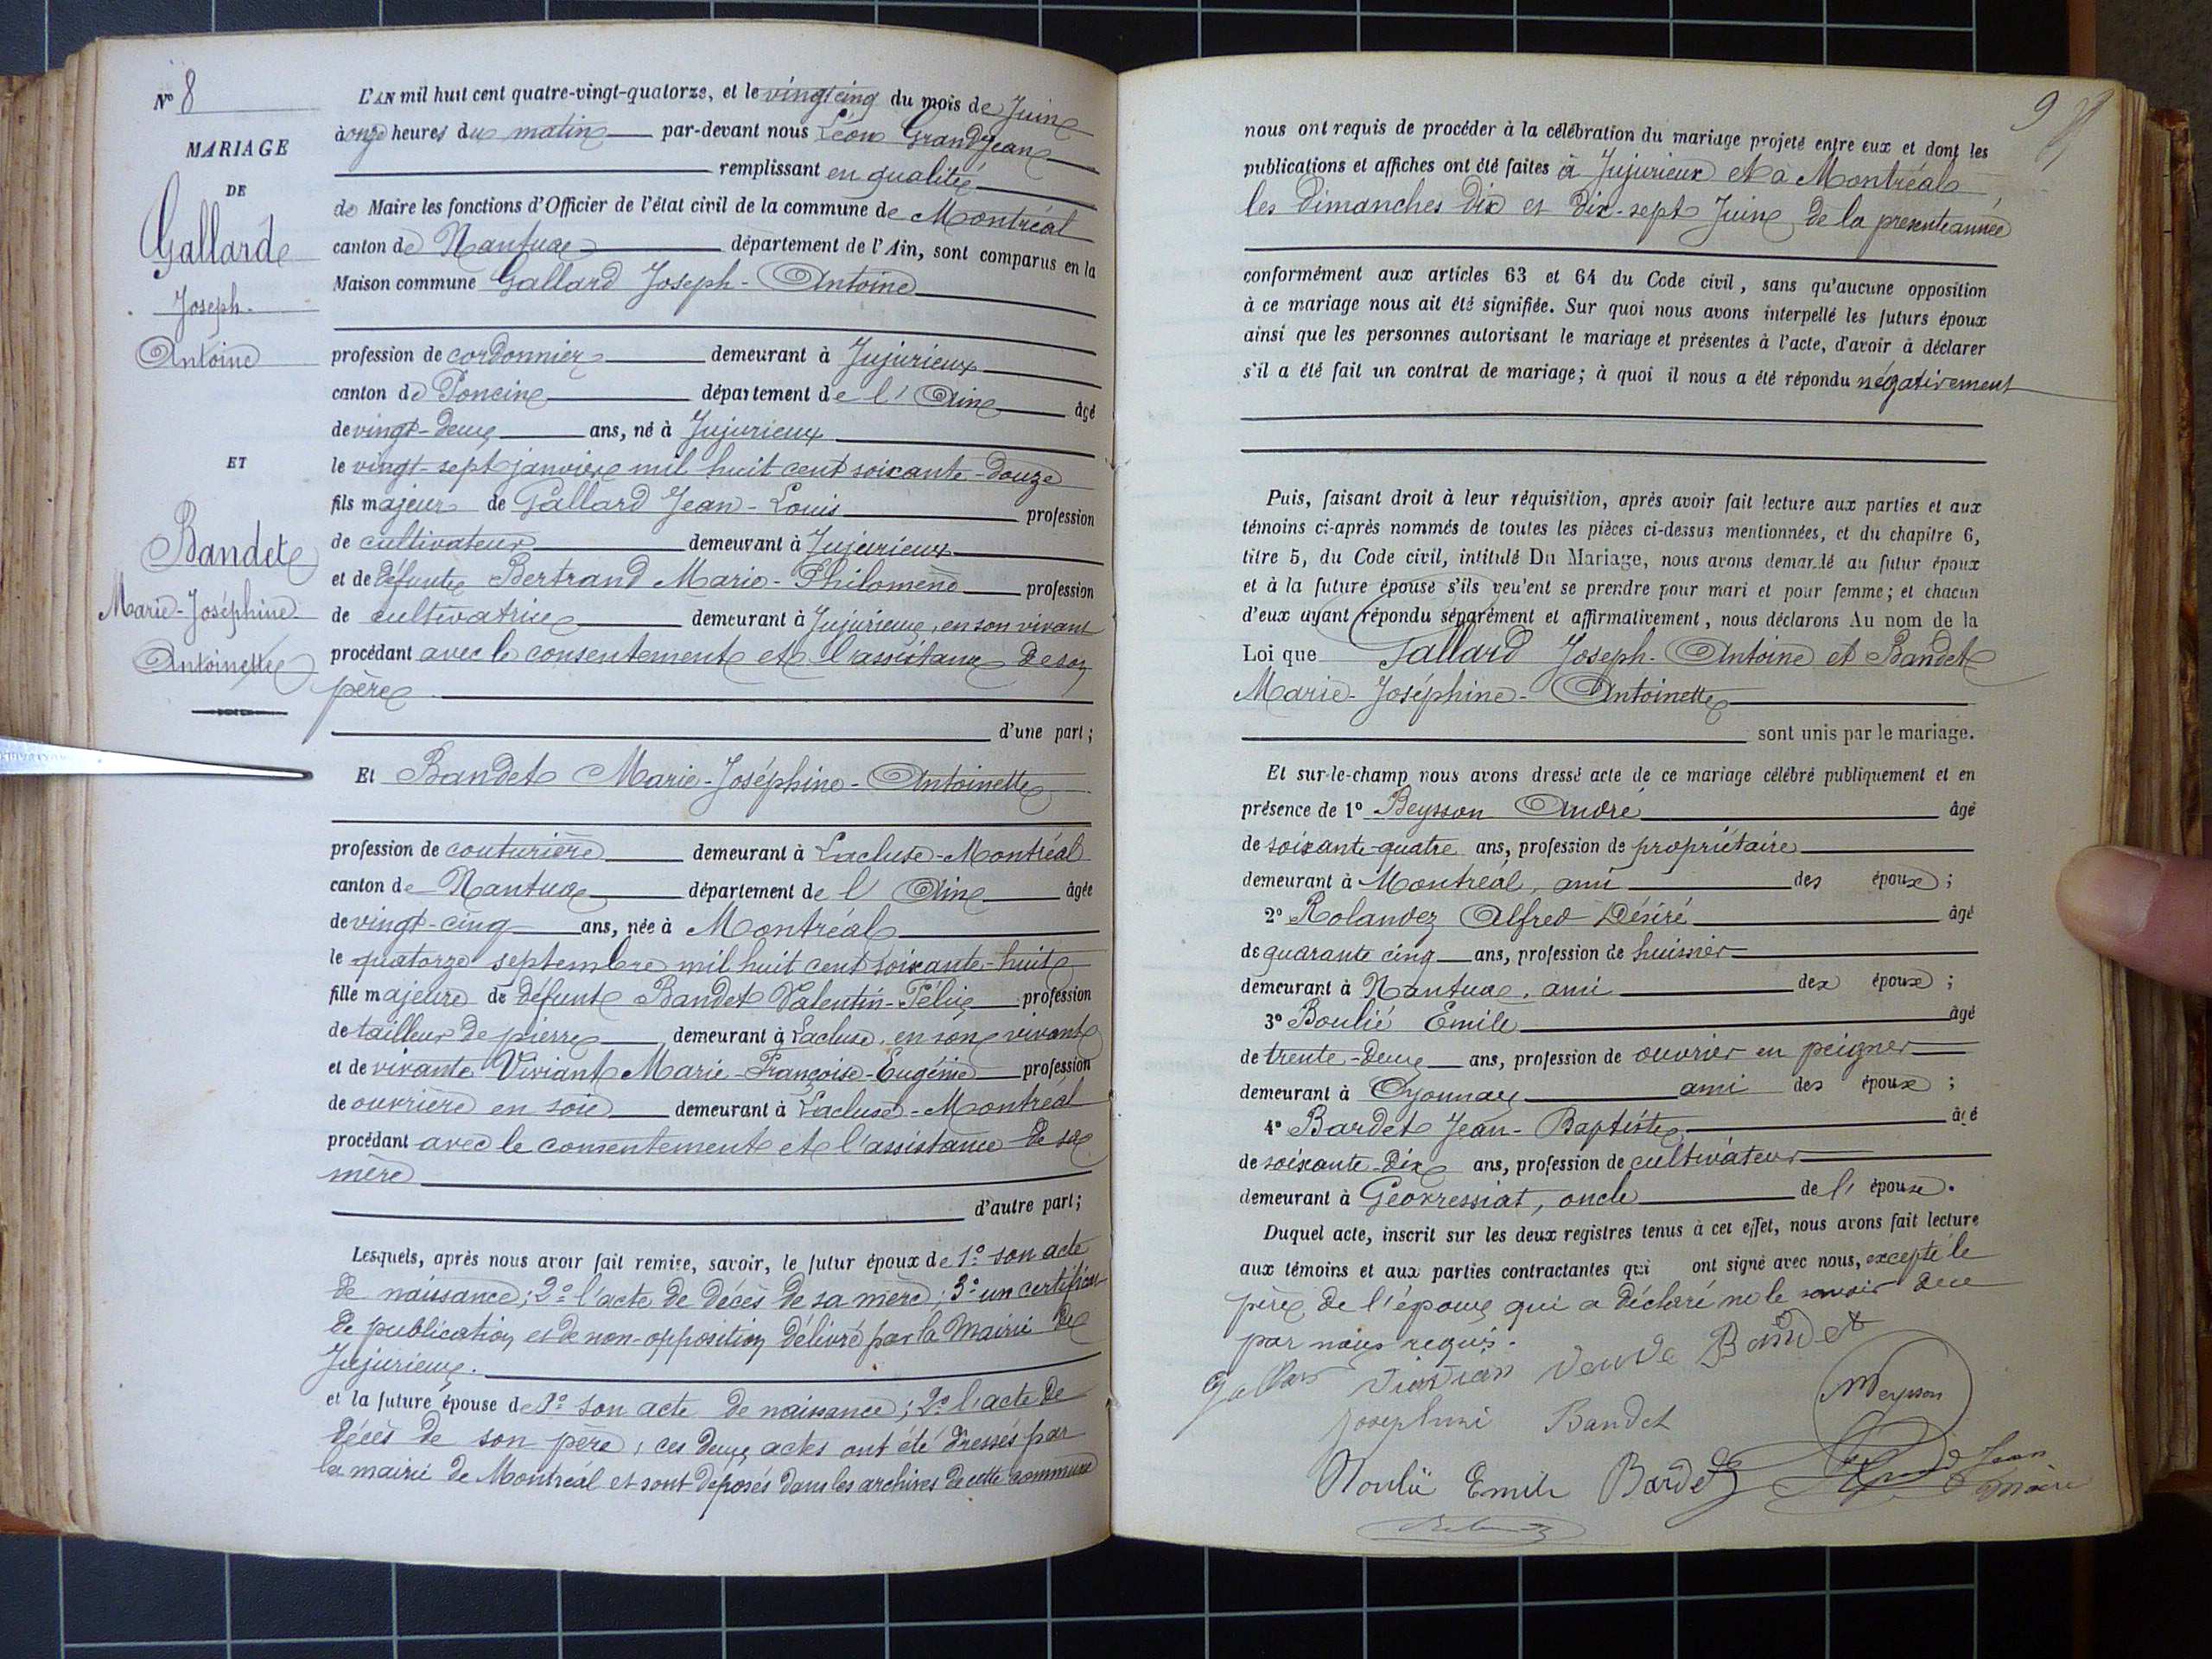 N° 8
MARIAGE
DE
Gallard
Joseph-
Antoine
ET
Bandet
Marie-Joséphine-
Antoinette
L'AN mil huit cent quatre-vingt-quatorze, et le vingt cinq du mois de Juin
à onze heures du matin par-devant nous Léon Grandjean
remplissant en qualité
de Maire les fonctions d'Officier de l'état civil de la commune de Montréal
canton de Nantua département de l'Ain, sont comparus en la
Maison commune Gallard Joseph-Antoine
profession de cordonnier demeurant à Jujurieux
canton de Poncin département de l'Ain âgé
de vingt-deux ans, né à Jujurieux
le vingt-sept janvier mil huit cent soixante-douze
fils majeur de Gallard Jean-Louis profession
de cultivateur demeurant à Jujurieux
et de défunte Bertrand Marie-Philomène profession
de cultivatrice demeurant à Jujurieux, en son vivant
procédant avec le consentement et l'assistance de son
père
d'une part;
Et Bandet Marie-Joséphine-Antoinette
profession de couturière demeurant à Lacluse-Montréal
canton de Nantua département de l'Ain âgée
de vingt-cinq ans, née à Montréal
le quatorze septembre mil huit cent soixante-huit
fille majeure de défunt Bandet Valentin-Félix profession
de tailleur de pierre demeurant à Lacluse, en son vivant
et de vivante Viviant Marie-Françoise-Eugénie profession
de ouvrière en soie demeurant à Lacluse-Montréal
procédant avec le consentement et l'assistance de sa
mère
d'autre part;
Lesquels, après nous avoir fait remise, savoir, le futur époux de 1° son acte
de naissance; 2° l'acte de décès de sa mère; 3° un certificat
de publication et de non-opposition délivré par la Mairie de
Jujurieux.
et la future épouse de 1° son acte de naissance; 2° l'acte de
décès de son père; ces deux actes ont été dressés par
la mairie de Montréal et sont déposés dans les archives de cette commune
9
nous ont requis de procéder à la célébration du mariage projeté entre eux et dont les
publications et affiches ont été faites à Jujurieux et à Montréal
les Dimanches dix et dix-sept Juin de la présente année
conformément aux articles 63 et 64 du Code civil, sans qu'aucune opposition
à ce mariage nous ait été signifiée. Sur quoi nous avons interpellé les futurs époux
ainsi que les personnes autorisant le mariage et présentes à l'acte, d'avoir à déclarer
s'il a été fait un contrat de mariage; à quoi il nous a été répondu négativement
Puis, faisant droit à leur réquisition, après avoir fait lecture aux parties et aux
témoins ci-après nommés de toutes les pièces ci-dessus mentionnées, et du chapitre 6,
titre 5, du Code civil, intitulé Du Mariage, nous avons demandé au futur époux
et à la future épouse s'ils veulent se prendre pour mari et pour femme; et chacun
d'eux ayant répondu séparément et affirmativement, nous déclarons Au nom de la
Loi que Gallard Joseph-Antoine et Bandet
Marie-Joséphine-Antoinette
sont unis par le mariage.
Et sur-le-champ nous avons dressé acte de ce mariage célébré publiquement et en
présence de 1° Beysson André âgé
de soixante-quatre ans, profession de propriétaire
demeurant à Montréal, ami des époux;
2° Rolandez Alfred Désiré âgé
de quarante cinq ans, profession de huissier
demeurant à Nantua, ami des époux;
3° Boulié Emile âgé
de trente-deux ans, profession de ouvrier en peignes
demeurant à Oyonnax ami des époux;
4° Bardet Jean-Baptiste âgé
de soixante-dix ans, profession de cultivateur
demeurant à Géovressiat, oncle de l'épouse.
Duquel acte, inscrit sur les deux registres tenus à cet effet, nous avons fait lecture
aux témoins et aux parties contractantes qui ont signé avec nous, excepté le
père de l'époux qui a déclaré ne le savoir de ce
par nous requis.
Gallard Vivian veuve Bandet
Josephine Bandet Beysson
Boulié Emile Bardet Grandjean
Maire